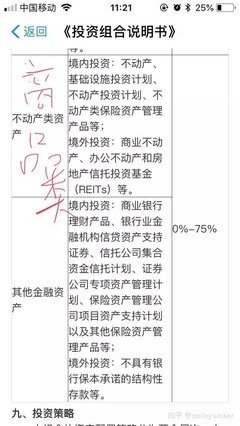 中国移动
11:21
25%
返回
《投资组合说明书》
不动产类资
产
境内投资：不动产、
基础设施投资计划、
不动产投资计划、不
动产类保险资产管理
产品等；
境外投资：商业不动
产、办公不动产和房
地产信托投资基金
（REITs）等。
其他金融资
产
境内投资：商业银行
理财产品、银行业金
融机构信贷资产支持
证券、信托公司集合
资金信托计划、证券
公司专项资产管理计
划、保险资产管理公
司项目资产支持计划
以及其他保险资产管
理产品等；
境外投资：不具有银
行保本承诺的结构性
存款等。
0%-75%
九、投资策略
知乎 @smileyamber